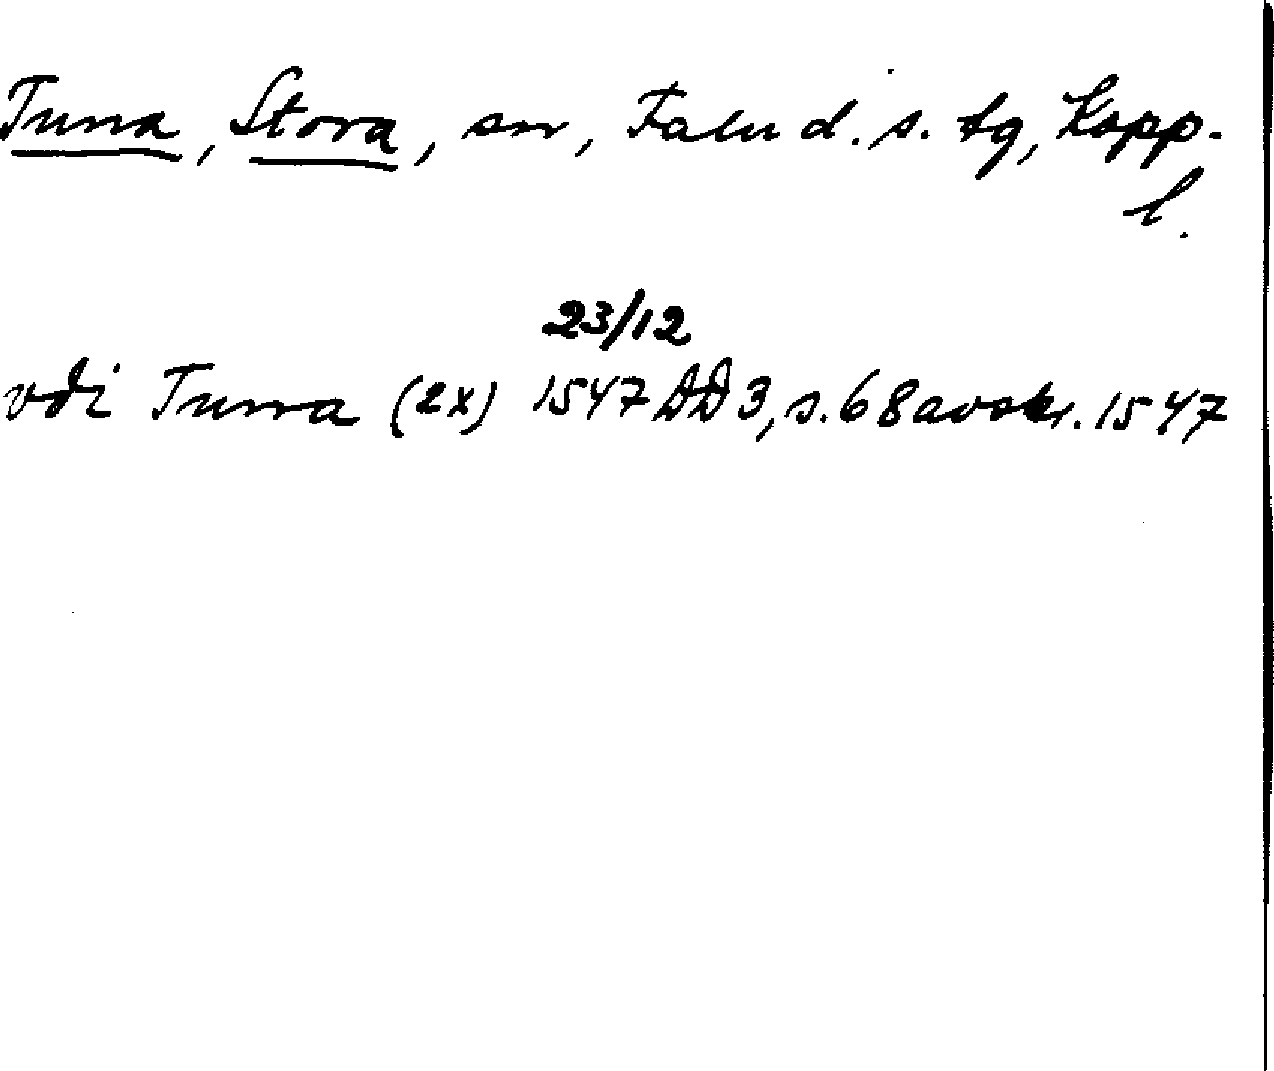 Tuna, Stora, sn, Falu d. s. tg, Kopp.
l.
23/12
vdi Tuna (2x) 1547 DD 3, s. 68 avskr. 1547